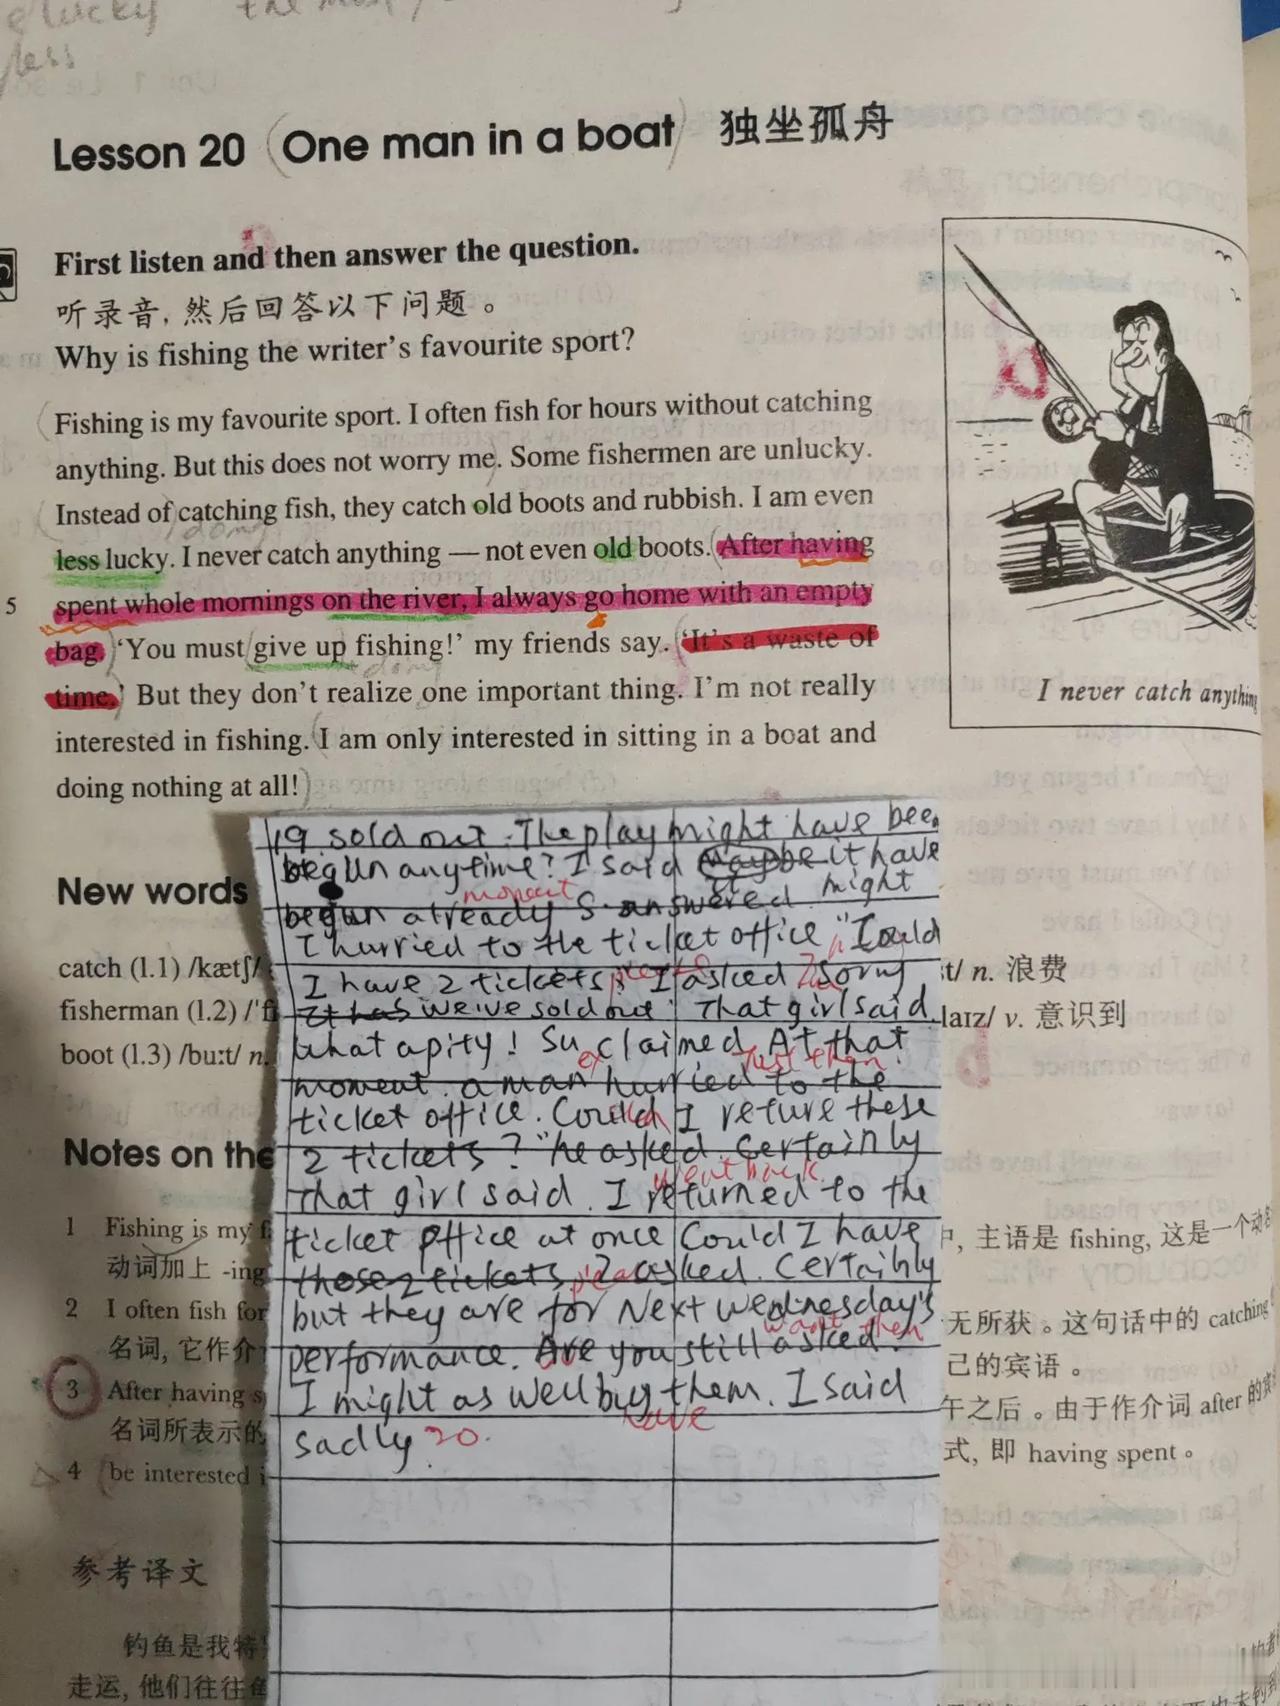 e lucky
less
Lesson 20 One man in a boat 独坐孤舟
First listen and then answer the question.
听录音，然后回答以下问题。
Why is fishing the writer's favourite sport?
Fishing is my favourite sport. I often fish for hours without catching
anything. But this does not worry me. Some fishermen are unlucky.
Instead of catching fish, they catch old boots and rubbish. I am even
doing
less lucky. I never catch anything — not even old boots. After having
5 spent whole mornings on the river, I always go home with an empty
bag. 'You must give up fishing!' my friends say. 'It's a waste of
doing
time.' But they don't realize one important thing. I'm not really
interested in fishing. I am only interested in sitting in a boat and
doing nothing at all!
I never catch anything
19 sold out. The play might have been
begun anytime? I said maybe it have
might
moment
begun already S. answered
I hurried to the ticket office "Could
I have 2 tickets please I asked sorry
It has we've sold out. That girl said.
What a pity! Su claimed At that
ex Just then
moment a man hurried to the
ticket office. Could I reture these
2 tickets? "he asked. Certainly
went back
that girl said. I returned to the
ticket office at once Could I have
those 2 tickets, please I asked. Certainly
but they are for Next Wednesday's
want them
performance. Are you still asked.
I might as well buy them. I said
have
sadly 20.
New words
catch (l.1) /kætʃ/
fisherman (l.2) /ˈfi
boot (l.3) /buːt/ n.
t/ n. 浪费
laɪz/ v. 意识到
Notes on the
1 Fishing is my f
中, 主语是 fishing, 这是一个动名
动词加上 -ing
2 I often fish for
无所获。这句话中的 catching
名词, 它作介
己的宾语。
3 After having s
午之后。由于作介词 after 的宾
名词所表示的
式, 即 having spent。
4 be interested i
参考译文
钓鱼是我特
走运, 他们往往鱼